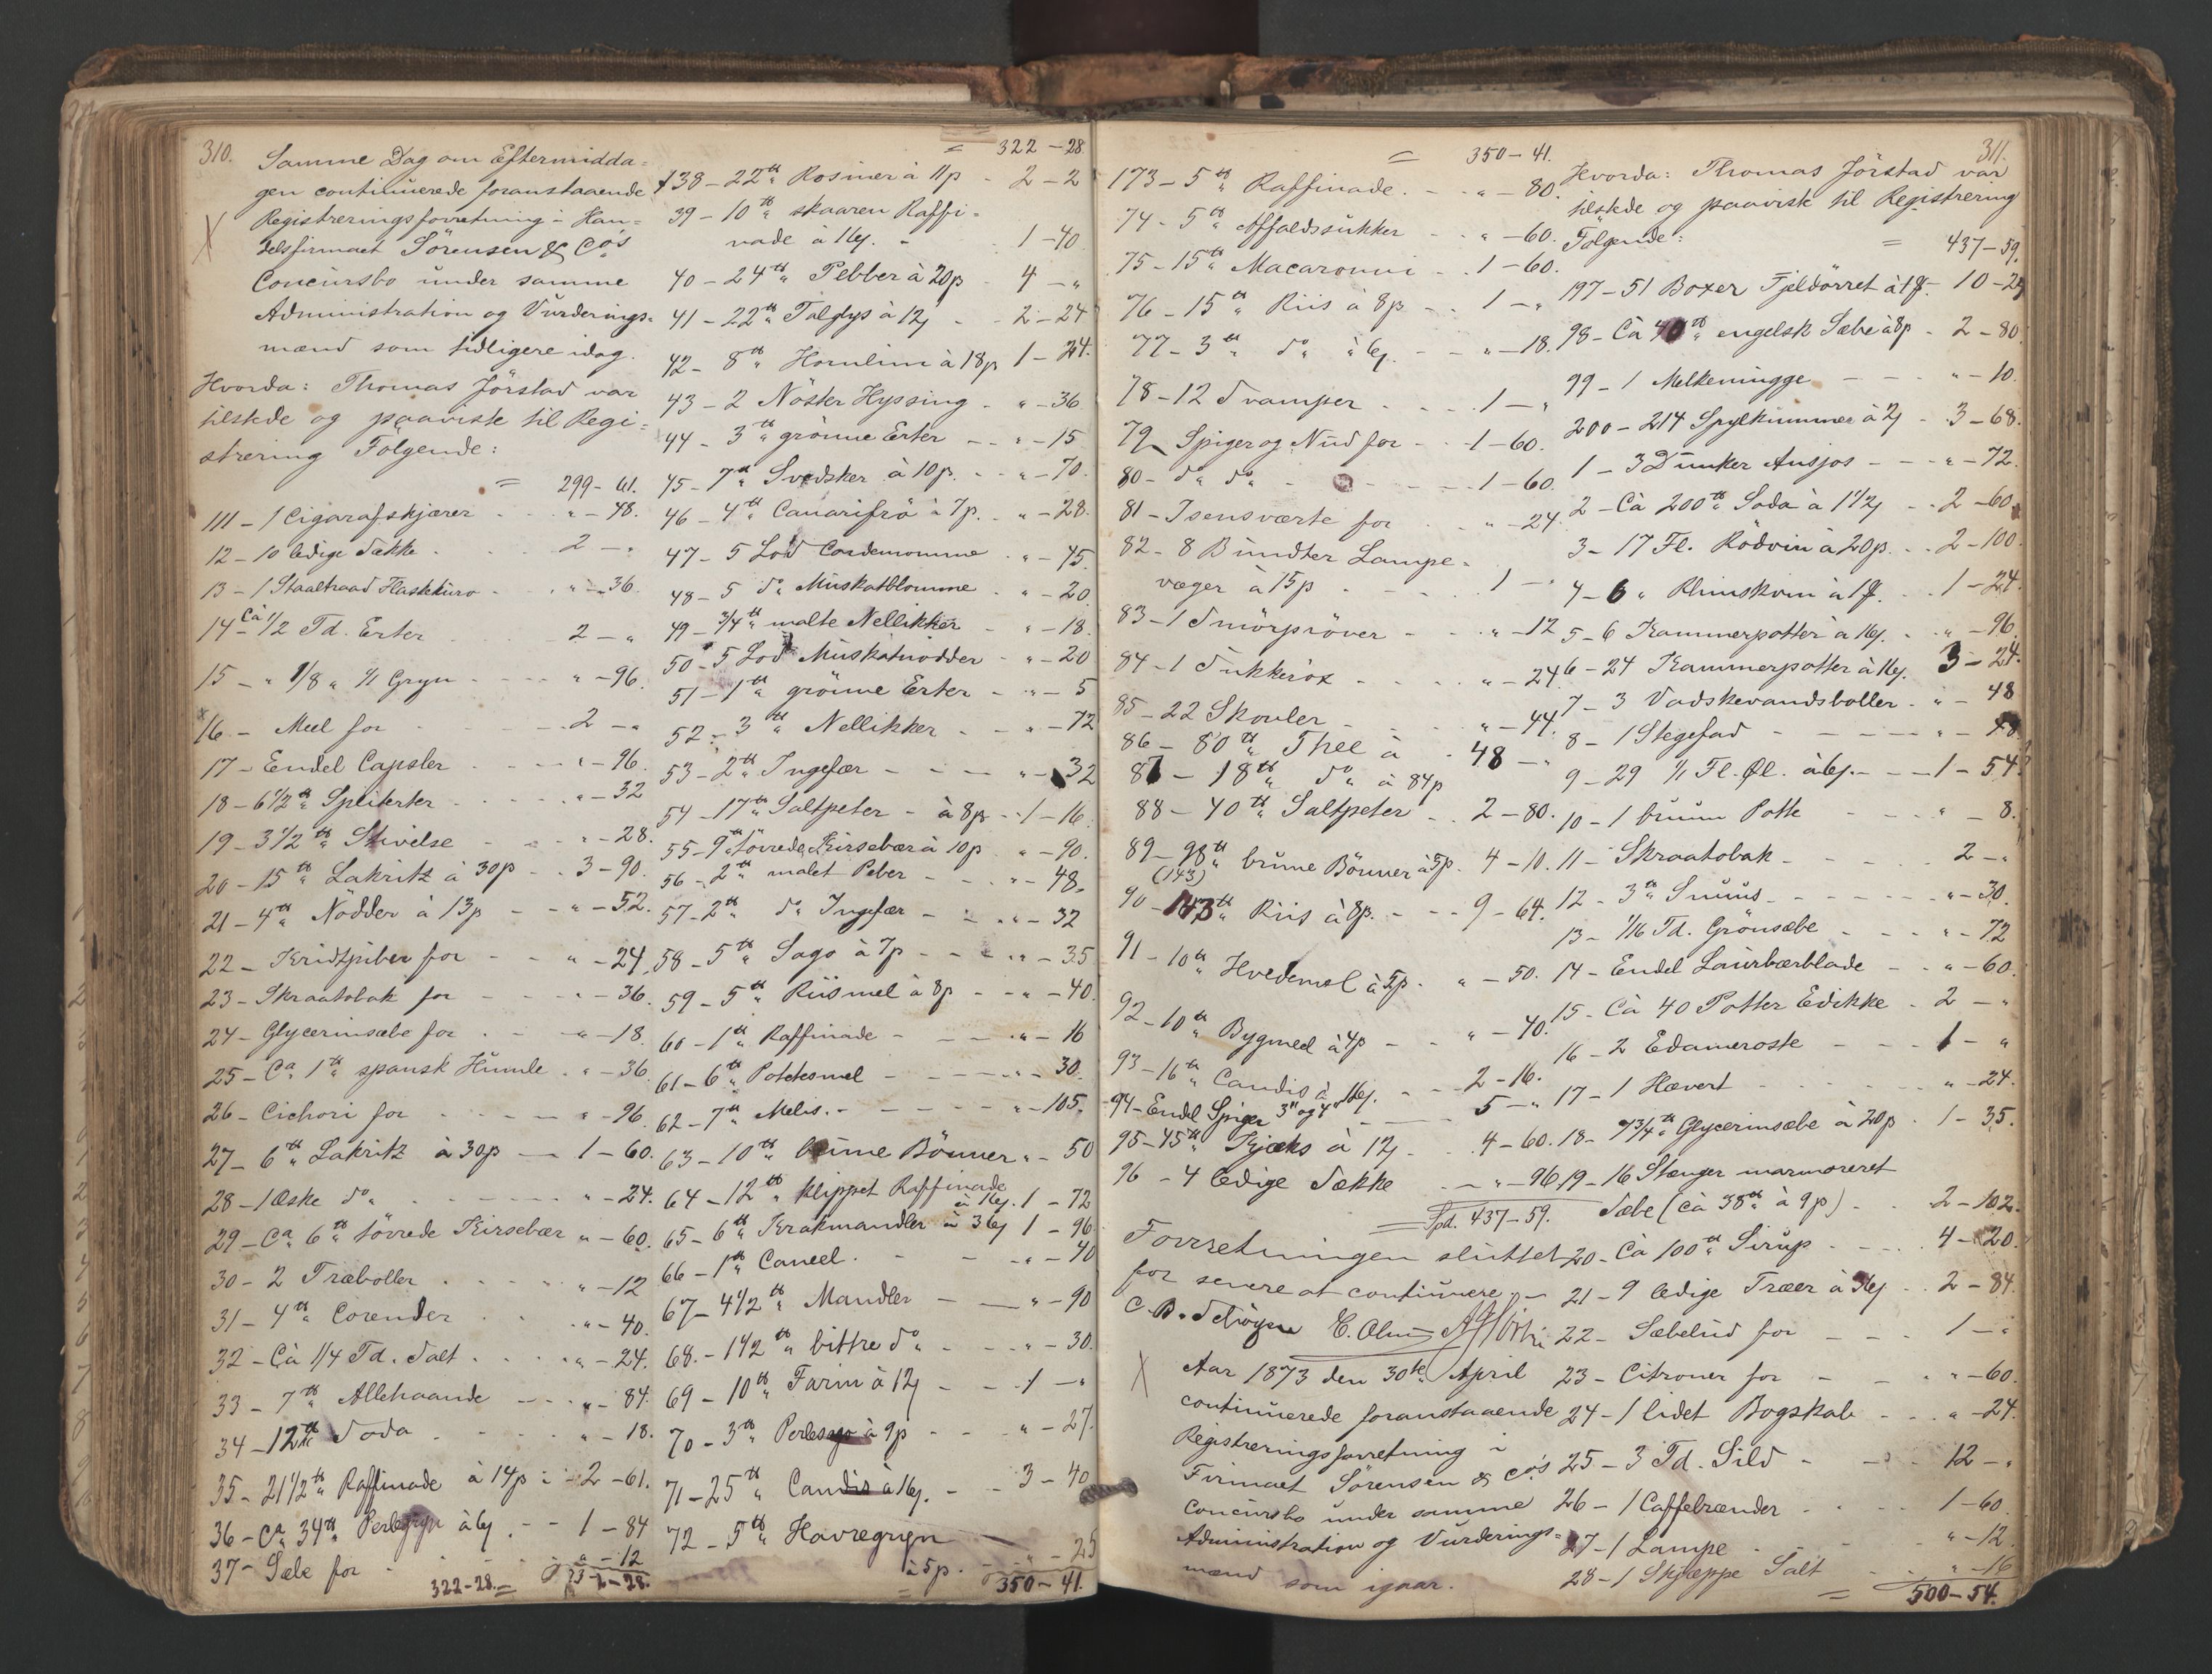 310.
Samme Dag om Eftermidda=
gen continuerede foranstaaende
Registreringsforretning i Han=
delsfirmaet Sörensen & Co's
Concursbo under samme
Administration og Vurderings=
mænd som tidligere idag.
Hvorda: Thomas Jörstad var
tilstede og paaviste til Regi=
strering Følgende:
= 299-61.
111 - 1 Cigarafskjærer - " - 48.
12 - 10 ledige Sække - 2 - "
13 - 1 Staaltraad Flaskekurv - " - 36.
14 - Ca 1/2 Td. Erter - 2 - "
15 - " 1/8 " 1/1 Gryn - " - 96.
16 - Meel for - 2 - "
17 - Endel Capsler - " - 96.
18 - 6 1/2 ℔ Spliterter - " - 32
19 - 3 1/2 ℔ Stivelse - " - 28.
20 - 15 ℔ Lakritz à 30 p - 3 - 90.
21 - 4 ℔ Nödder à 13 p - " - 52.
22 - Kridtpiber for - " - 24.
23 - Skraatobak for - " - 36.
24 - Glycerinsæbe for - " - 18.
25 - Ca 1 ℔ spansk Humle - " - 36.
26 - Cichori for - " - 96.
27 - 6 ℔ Lakritz à 30 p - 1 - 60.
28 - 1 Æske do - " - 24.
29 - Ca 6 ℔ törrede Kirsebær " - 60.
30 - 2 Træboller - " - 12
31 - 4 ℔ Corender - " - 40.
32 - Ca 1/4 Td. Salt - " - 24.
33 - 7 ℔ Allehaande - " - 84.
34 - 12 ℔ Soda - " - 18.
35 - 21 1/2 ℔ Raffinade à 14 p - 2 - 61.
36 - Ca 34 ℔ Perlegryn à 6 ß - 1 - 84
37 - Sæle for - " - 12
322-28. = 322-28.
= 322 - 28
138 - 22 ℔ Rosiner à 11 p - 2 - 2
39 - 10 ℔ skaaren Raffi=
nade à 16 ß. - 1 - 40.
40 - 24 ℔ Pebber à 20 p - 4 - "
41 - 22 ℔ Talglys à 12 ß - 2 - 24
42 - 8 ℔ Hornlim à 18 p 1 - 24.
43 - 2 Nöster Hyssing - " - 36
44 - 3 ℔ grönne Erter - " - 15
45 - 7 ℔ Svedsker à 10 p. - " - 70.
46 - 4 ℔ Canarifrö à 7 p. - " - 28.
47 - 5 Lod Cardemomme - " - 45.
48 - 5 do Muskatblomme - " - 20
49 - 3/4 ℔ malte Nellikker - " - 18.
50 - 5 Lod Muskatnödder - " - 20
51 - 1 ℔ grönne Erter - " - 5
52 - 3 ℔ Nellikker - " - 72
53 - 2 ℔ Ingefær - " - 32
54 - 17 ℔ Saltpeter - à 8 p - 1 - 16.
55 - 9 ℔ törrede Kirsebær à 10 p " - 90.
56 - 2 ℔ malet Peber - " - 48.
57 - 2 ℔ do Ingefær - " - 32
58 - 5 ℔ Sago à 7 p - " - 35
59 - 5 ℔ Riismel à 8 p - " - 40.
60 - 1 ℔ Raffinade - " - 16
61 - 6 ℔ Potetesmel - " - 30.
62 - 7 ℔ Melis. - " - 105.
63 - 10 ℔ brune Bönner " - 50
64 - 12 ℔ klippet Raffinade
à 16 ß. 1 - 72
65 - 6 ℔ Krakmandler à 36 ß 1 - 96.
66 - 1 ℔ Caneel. - " - 40
67 - 4 1/2 ℔ Mandler - " - 90
68. - 1 1/2 ℔ bittre do - " - 30.
69 - 10 ℔ Farin à 12 ß - 1 - "
70 - 3 ℔ Perlesago à 9 p - " - 27.
71 - 25 ℔ Candis à 16 ß. - 3 - 40
72 - 5 ℔ Havregryn
à 5 p. - " - 25
= 350 - 41.
= 350 - 41.
173 - 5 ℔ Raffinade. - " - 80.
74 - 5 ℔ Affaldssukker - " - 60.
75 - 15 ℔ Macaronni - 1 - 60.
76 - 15 ℔ Riis à 8 p - 1 - "
77 - 3 ℔ do à 6 ß. - " - 18.
78 - 12 Svamper - 1 - "
79 - Spiger og Nud for - 1 - 60.
80 - do do - 1 - 60.
81 - Isensværte for - " - 24.
82 - 8 Bundter Lampe=
væger à 15 p - 1 - "
83 - 1 Smörpröver - " - 12
84 - 1 Sukkeröx - " - 24
85 - 22 Skovler - " - 44.
86 - 80 ℔ Thee à - 48 - "
87 - 18 ℔ do à 84 p
88 - 40 ℔ Saltpeter - 2 - 80.
89 - 98 ℔ brune Bönner à 5 p. 4 - 10.
(143)
90 - 143 ℔ Riis à 8 p. - 9 - 64.
91 - 10 ℔ Hvedemel à 5 p. " - 50.
92 - 10 ℔ Bygmeel à 4 p - " - 40.
93 - 16 ℔ Candis à 16 ß. - 2 - 16.
94 - Endel Spiger 3" og 4" - 5 - "
95 - 45 ℔ Kjæks à 12 ß - 4 - 60.
96 - 4 ledige Sække - " - 96
= Spd. 437 - 59.
Forretningen sluttet
for senere at continuere. -
C. B. C. Olsen
Aar 1873 den 30te April
continuerede foranstaaende
Registreringsforretning i
Firmaet Sörensen & Co's
Concursbo under samme
Administration og Vurderings=
mænd som igaar.
311.
Hvorda: Thomas Jörstad var
tilstede og paaviste til Registrering
Følgende:
= 437 - 59.
197 - 51 Boxer Fjeldörret à 1 ß - 10 - 24
98 - Ca 40 ℔ engelsk Sæbe à 8 p - 2 - 80.
99 - 1 Melkemugge - " - 10.
200 - 214 Spylkummer à 2 ß - 3 - 68.
1 - 3 Dunker Ansjos - " - 72.
2 - Ca 200 ℔ Soda à 1 1/2 ß - 2 - 60.
3 - 17 Fl. Rödvin à 20 p. - 2 - 100.
4 - 6 " Rhinskvin à 1 ß. - 1 - 24.
5 - 6 Kammerpotter à 16 ß. - " - 96.
6 - 24 Kammerpotter à 16 ß. 3 - 24.
7 - 3 Vadskevandsboller. " - 48
8 - 1 Stegefad - " - 48
9 - 29 1/1 Fl. Øl. à 6 ß. - 1 - 54.
10 - 1 bruun Potte - " - 8.
11 - Skraatobak - 2 - "
12 - 3 ℔ Snuus - " - 30.
13 - 1/16 Td. Grönsæbe - " - 72
14 - Endel Laurbærblade - " - 60.
15 - Ca 40 Potter Edikke - 2 - "
16 - 2 Edameroste - 1 - "
17 - 1 Hævert - " - 24.
18 - 7 3/4 ℔ Glycerinsæbe à 20 p. 1 - 35.
19 - 16 Stænger marmoreret
Sæbe (ca 38 ℔ à 9 p) - 2 - 102.
20 - Ca 100 ℔ Sirup - 4 - 20.
21 - 9 ledige Træer à 36 ß - 2 - 84.
22 - Sæbelud for - 1 - "
23 - Citroner for - " - 60.
24 - 1 lidet Bogskab - " - 24.
25 - 3 Td. Sild - 12 - "
26 - 1 Caffebrænder - 1 - 60.
27 - 1 Lampe - " - 12.
28 - 1 Skjæppe Salt - " - 16
= 500 - 54.